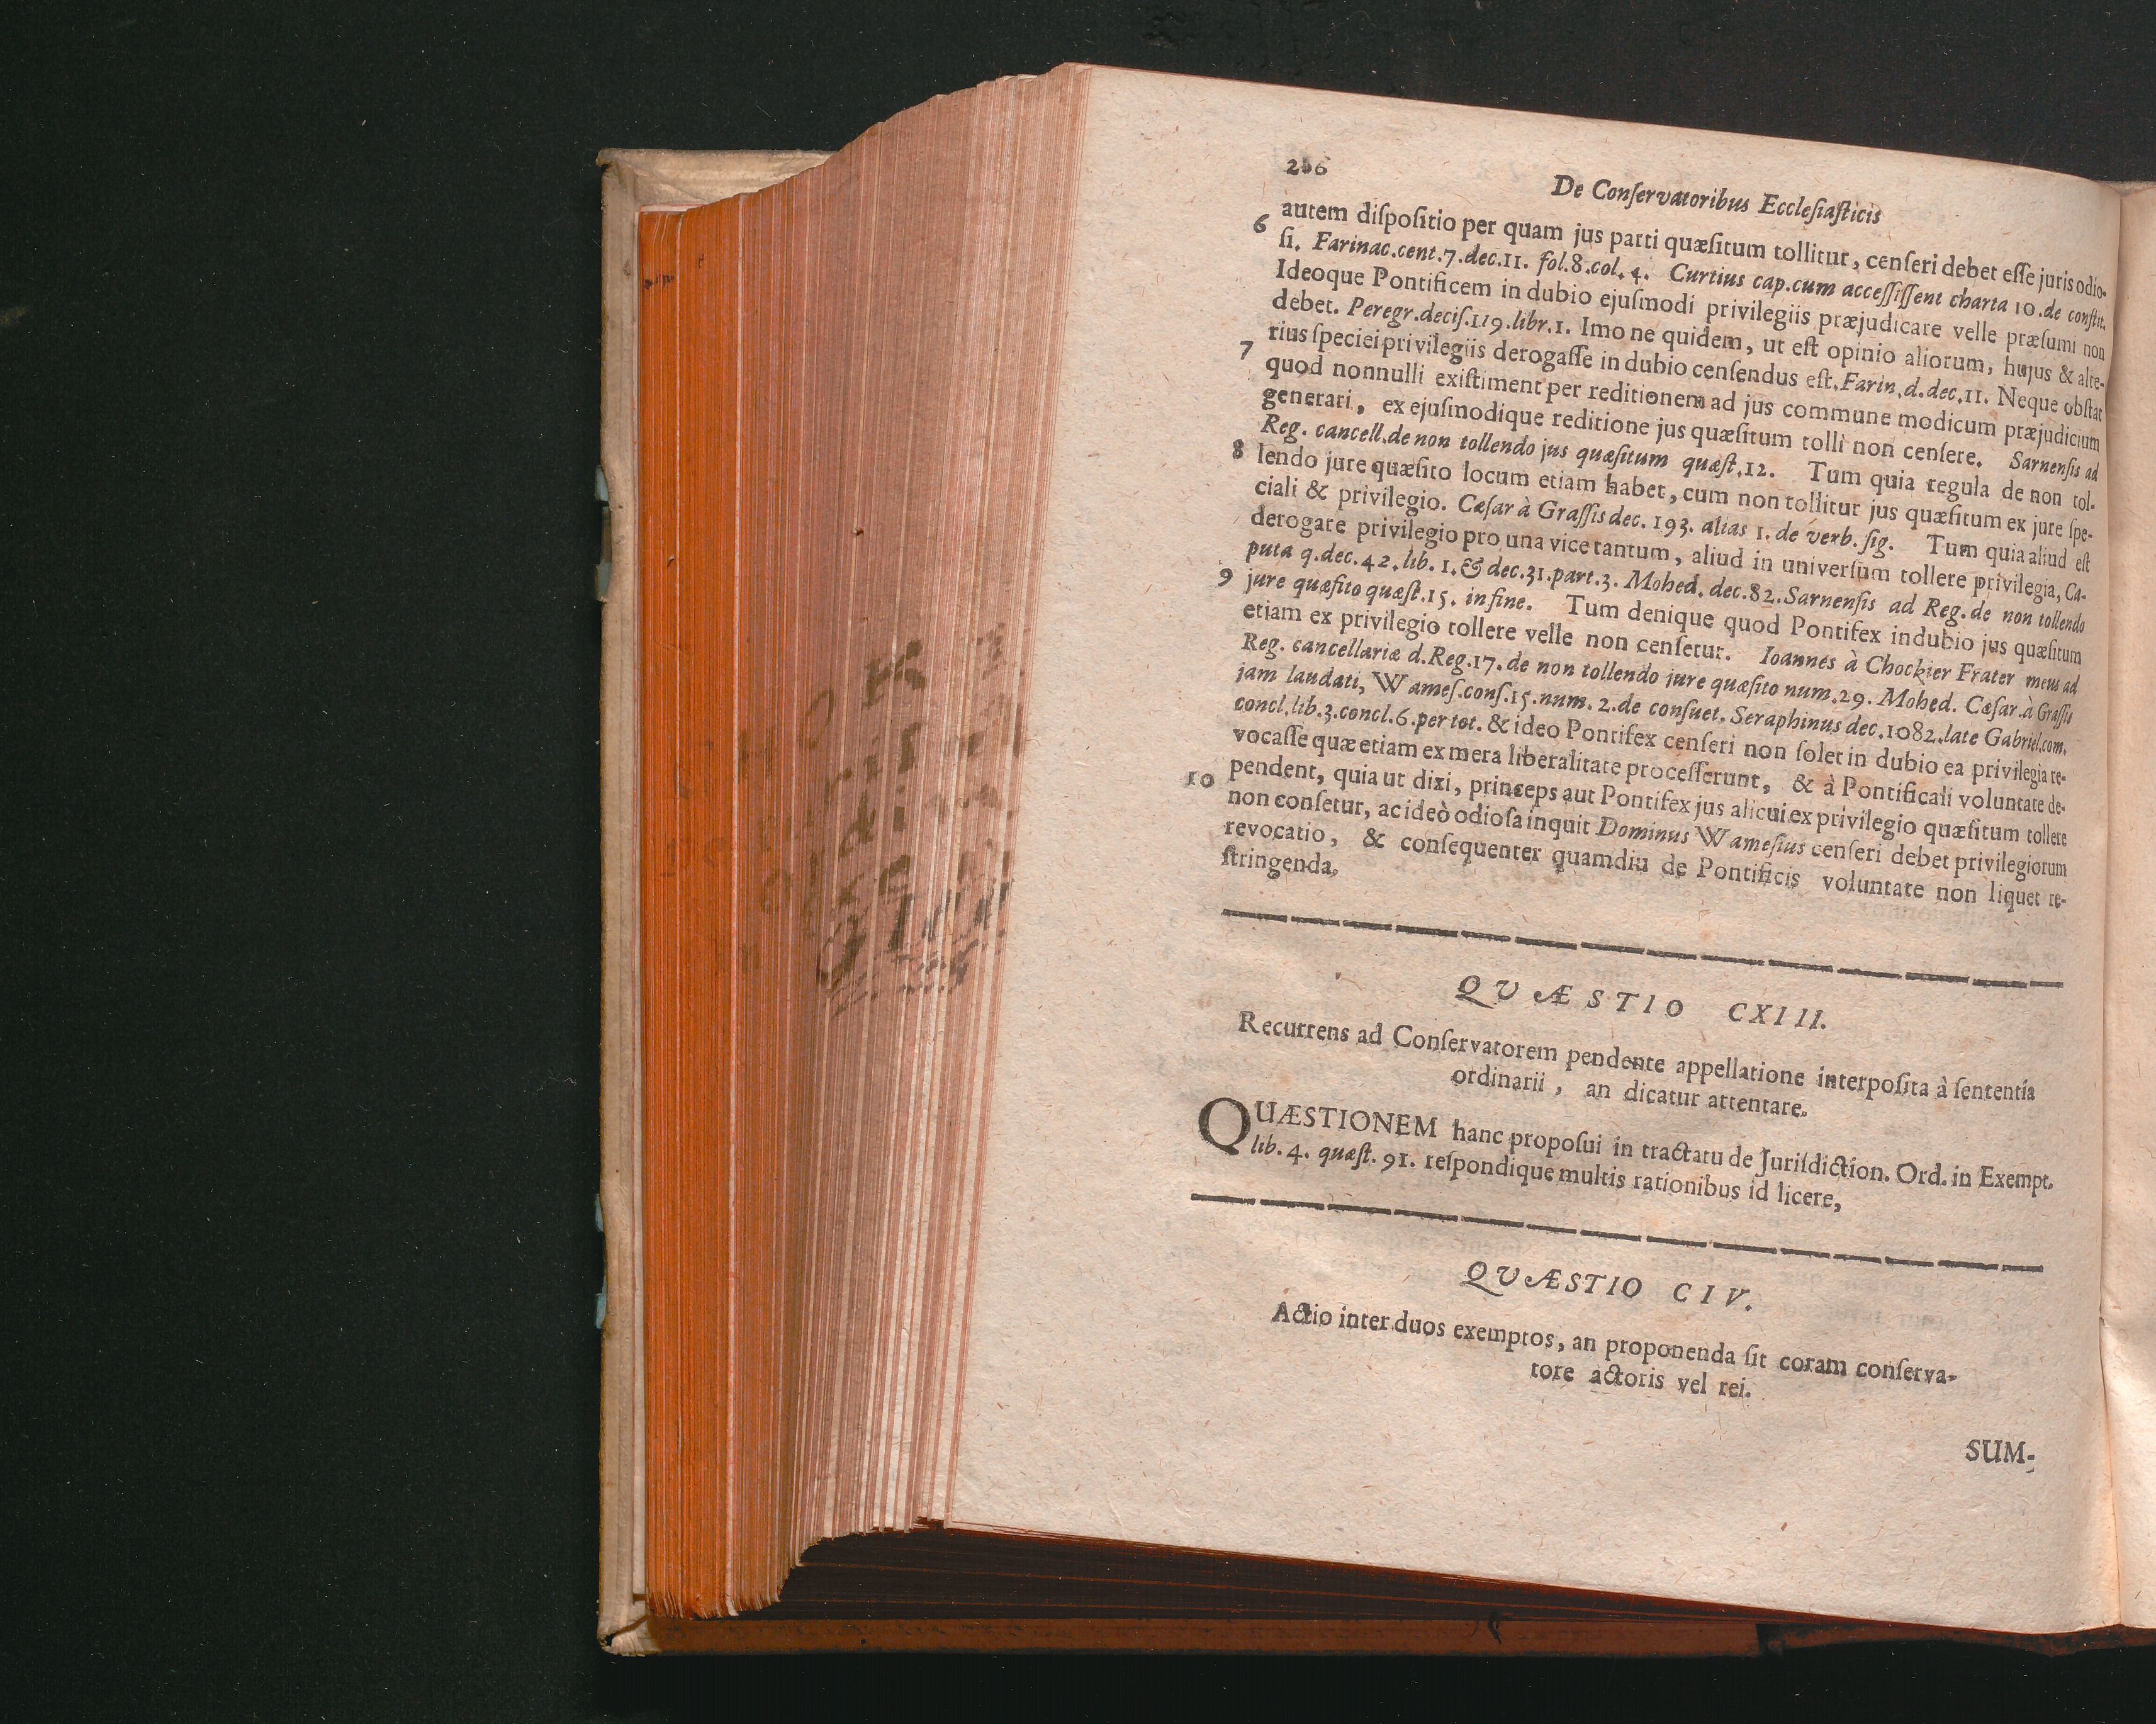 206
De Conſervatoribus Eccleſiaſticis
autem diſpoſitio per quam jus parti quæſitum tollitur, cenſeri debet eſſe juris odio-
6 ſi. Farinac.cent.7.dec.11. fol.8.col.4. Curtius cap.cum acceſſiſſent charta 10.de conſtit.
Ideoque Pontificem in dubio ejuſmodi privilegiis præjudicare velle præſumi non
debet. Peregr.deciſ.119.libr.1. Imo ne quidem, ut eſt opinio aliorum, hujus & alte-
rius ſpeciei privilegiis derogaſſe in dubio cenſendus eſt. Farin.d.dec.11. Neque obſtat
7 quod nonnulli exiſtiment per reditionem ad jus commune modicum præjudicium
generari, ex ejuſmodique reditione jus quæſitum tolli non cenſere. Sarnenſis ad
Reg. cancell.de non tollendo jus quæſitum quæſt.12. Tum quia regula de non tol-
8 lendo jure quæſito locum etiam habet, cum non tollitur jus quæſitum ex jure ſpe-
ciali & privilegio. Cæſar à Graſſis dec. 193. alias 1. de verb. ſig. Tum quia aliud eſt
derogare privilegio pro una vice tantum, aliud in universum tollere privilegia, Ca-
puta q.dec.42.lib. 1.& dec.31.part.3. Mohed. dec.82.Sarnenſis ad Reg.de non tollendo
9 jure quæſito quæſt.15. in fine. Tum denique quod Pontifex in dubio jus quæſitum
etiam ex privilegio tollere velle non cenſetur. Ioannes à Chockier Frater meus ad
Reg. cancellariæ d.Reg.17. de non tollendo jure quæſito num.29. Mohed. Cæſar.à Graſſis
jam laudati, Wameſ.conſ.15.num. 2.de conſuet. Seraphinus dec.1082.late Gabriel.com.
concl.lib.3.concl.6.per tot. & ideo Pontifex cenſeri non ſolet in dubio ea privilegia re-
vocaſſe quæ etiam ex mera liberalitate proceſſerunt, & à Pontificali voluntate de-
10 pendent, quia ut dixi, princeps aut Pontifex jus alicui ex privilegio quæſitum tollere
non conſetur, ac ideò odioſa inquit Dominus Wameſius cenſeri debet privilegiorum
revocatio, & conſequenter quamdiu de Pontificis voluntate non liquet re-
ſtringenda.
QVÆSTIO CXIII.
Recurrens ad Conſervatorem pendente appellatione interpoſita à ſententia
ordinarii, an dicatur attentare.
QUÆSTIONEM hanc propoſui in tractatu de Juriſdiction. Ord. in Exempt.
lib. 4. quæſt. 91. reſpondique multis rationibus id licere,
QVÆSTIO CIV.
Actio inter duos exemptos, an proponenda ſit coram conſerva-
tore actoris vel rei.
SUM-